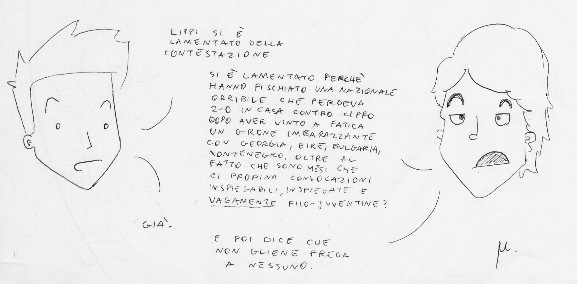 LIPPI SI È
LAMENTATO DELLA
CONTESTAZIONE
SI È LAMENTATO PERCHÈ
HANNO FISCHIATO UNA NAZIONALE
ORRIBILE CHE PERDEVA
2-0 IN CASA CONTRO CIPRO
DOPO AVER VINTO A FATICA
UN GIRONE IMBARAZZANTE
CON GEORGIA, EIRE, BULGARIA,
MONTENEGRO, OLTRE AL
FATTO CHE SONO MESI CHE
CI PROPINA CONVOCAZIONI
INSPIEGABILI, INSPIEGATE E
VAGAMENTE FILO-JUVENTINE?
GIÀ.
E POI DICE CHE
NON GLIENE FREGA
A NESSUNO.